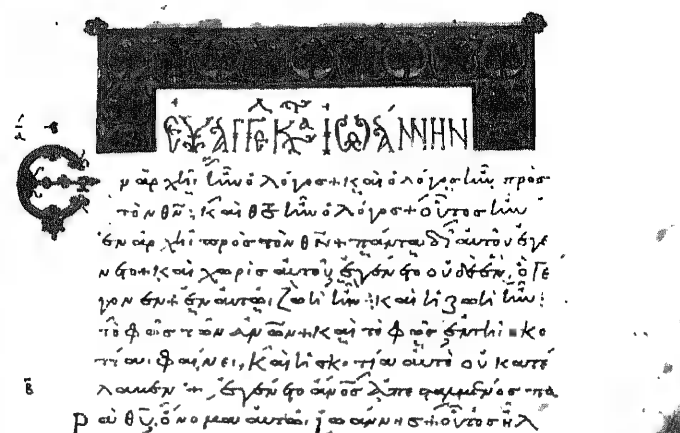 ΕΥΑΓΓΕ ΚΤ ΙΩΑΝΝΗΝ
Ἐν ἀρχῆι ἦν ὁ λόγος + καὶ ὁ λόγος ἦν πρὸσ
τὸν θν · καὶ θς ἦν ὁ λόγος + οὗτος ἦν
ἐν ἀρχῆι πρὸς τὸν θν + πάντα δι αὐτοῦ ἐγέ
νετο + καὶ χωρὶς αὐτοῦ ἐγένετο οὐδὲ ἕν, ὃ γέ
γονεν + ἐν αὐτῶι ζωὴ ἦν · καὶ ἡ ζωὴ ἦν
τὸ φῶς τῶν ἀνων + καὶ τὸ φῶς ἐν τῆι σκο
τίαι φαίνει, καὶ ἡ σκοτία αὐτὸ οὐ κατέ
λαβεν + ἐγένετο ἀνος ἀπεσταλμένος πα
ρὰ θυ, ὄνομα αὐτῶι ἰωάννης + οὗτος ἦλ